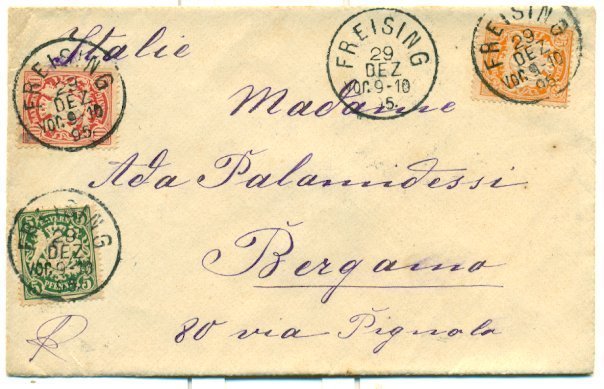 Italie
FREISING
29
DEZ
VOR.9-10
95
FREISING
29
DEZ
VOR.9-10
95
FREISING
29
DEZ
VOR.9-10
95
Madame
Ada Palannidessi
Bergamo
80 via Pignola
FREISING
29
DEZ
VOR.9-10
5
PFENNIG
5
R